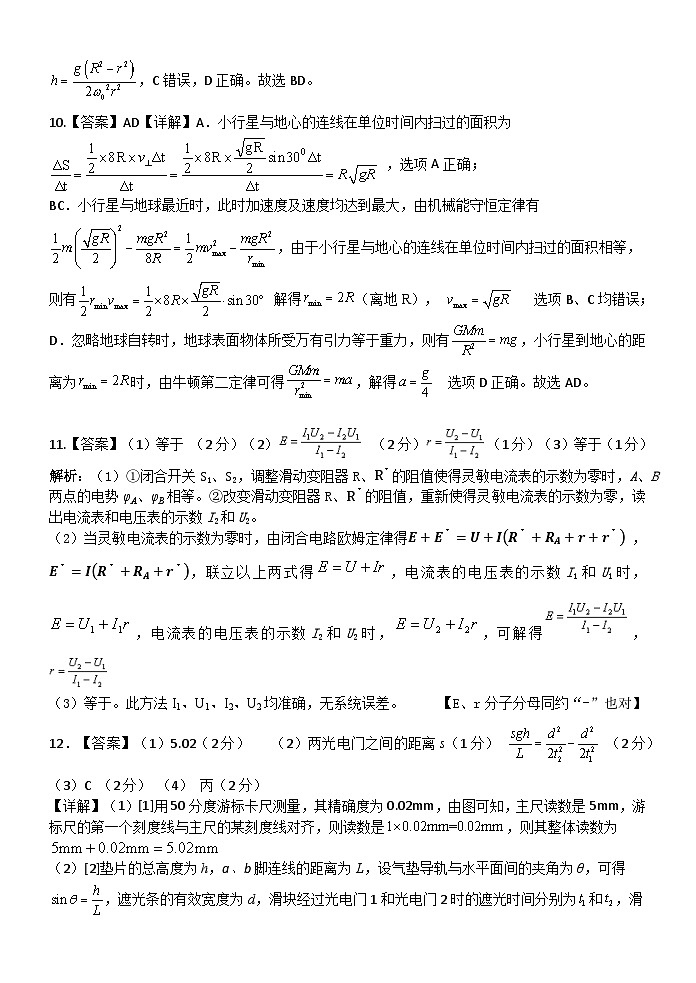 h = g(R² − r²) / 2ω₀²r²，C 错误，D 正确。故选 BD。
10.【答案】AD【详解】A．小行星与地心的连线在单位时间内扫过的面积为
ΔS/Δt = (1/2 × 8R × v⊥Δt)/Δt = (1/2 × 8R × (√gR/2) sin30⁰ Δt)/Δt = R√gR ，选项 A 正确；
BC．小行星与地球最近时，此时加速度及速度均达到最大，由机械能守恒定律有
1/2 m(√gR/2)² − mgR²/8R = 1/2 mv²max − mgR²/rmin，由于小行星与地心的连线在单位时间内扫过的面积相等，
则有 1/2 rminvmax = 1/2 × 8R × √gR/2 · sin30° 解得 rmin = 2R（离地 R）， vmax = √gR 选项 B、C 均错误；
D．忽略地球自转时，地球表面物体所受万有引力等于重力，则有 GMm/R² = mg，小行星到地心的距
离为 rmin = 2R 时，由牛顿第二定律可得 GMm/r²min = ma，解得 a = g/4 选项 D 正确。故选 AD。
11.【答案】（1）等于 （2 分）（2）E = (I₁U₂−I₂U₁)/(I₁−I₂) （2 分）r = (U₂−U₁)/(I₁−I₂)（1 分）（3）等于（1 分）
解析:（1）①闭合开关 S₁、S₂，调整滑动变阻器 R、R＇的阻值使得灵敏电流表的示数为零时，A、B
两点的电势 φA、φB 相等。②改变滑动变阻器 R、R＇的阻值，重新使得灵敏电流表的示数为零，读
出电流表和电压表的示数 I₂ 和 U₂。
（2）当灵敏电流表的示数为零时，由闭合电路欧姆定律得 E + E＇ = U + I(R＇ + RA + r + r＇) ，
E＇ = I(R＇ + RA + r＇)，联立以上两式得 E = U + Ir ，电流表的电压表的示数 I₁ 和 U₁ 时，
E = U₁ + I₁r ，电流表的电压表的示数 I₂ 和 U₂ 时， E = U₂ + I₂r ，可解得 E = (I₁U₂−I₂U₁)/(I₁−I₂) ，
r = (U₂−U₁)/(I₁−I₂)
（3）等于。此方法 I₁、U₁、I₂、U₂ 均准确，无系统误差。 【E、r 分子分母同约“−”也对】
12．【答案】（1）5.02（2 分） （2）两光电门之间的距离 s（1 分） sgh/L = d²/2t₂² − d²/2t₁² （2 分）
（3）C （2 分） （4） 丙（2 分）
【详解】（1）[1]用 50 分度游标卡尺测量，其精确度为 0.02mm，由图可知，主尺读数是 5mm，游
标尺的第一个刻度线与主尺的某刻度线对齐，则读数是 1×0.02mm=0.02mm ，则其整体读数为
5mm + 0.02mm = 5.02mm
（2）[2]垫片的总高度为 h，a、b 脚连线的距离为 L，设气垫导轨与水平面间的夹角为 θ，可得
sinθ = h/L，遮光条的有效宽度为 d，滑块经过光电门 1 和光电门 2 时的遮光时间分别为 t₁ 和 t₂ ，滑